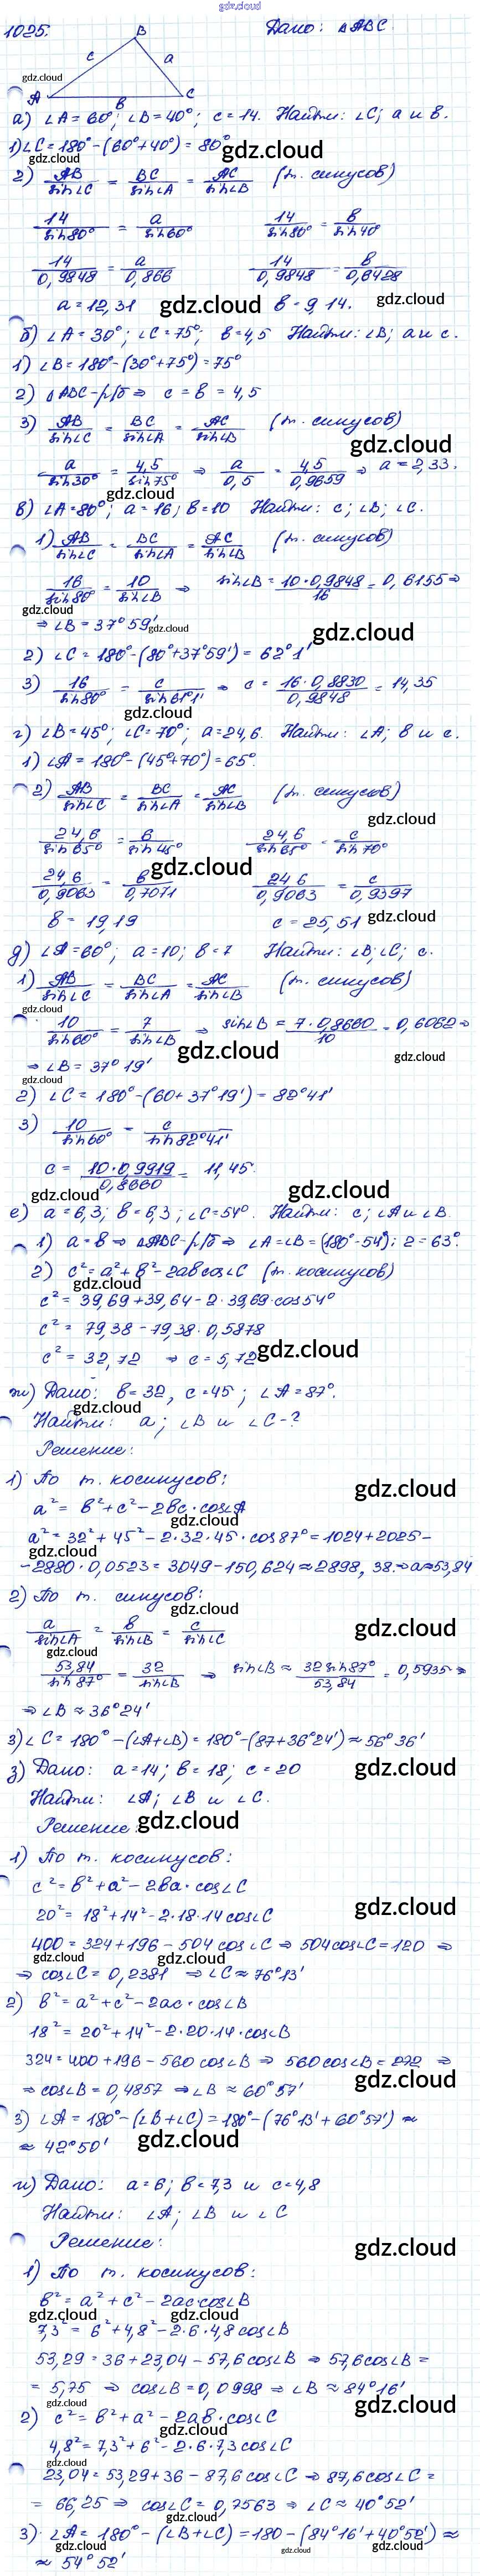 gdz.cloud
1025.
Дано: △ABC.
B
c
a
gdz.cloud
A
b
C
а) ∠A = 60°; ∠B = 40°; c = 14. Найти: ∠C; a и b.
1) ∠C = 180° - (60° + 40°) = 80°
gdz.cloud gdz.cloud
2) AB/sin∠C = BC/sin∠A = AC/sin∠B (т. синусов)
14/sin80° = a/sin60° 14/sin80° = b/sin40°
14/0,9848 = a/0,866 14/0,9848 = b/0,6428
a = 12,31 gdz.cloud b = 9,14. gdz.cloud
б) ∠A = 30°; ∠C = 75°; b = 4,5 Найти: ∠B; a и c.
1) ∠B = 180° - (30° + 75°) = 75°
2) △ABC - р/б ⇒ c = b = 4,5
3) AB/sin∠C = BC/sin∠A = AC/sin∠B (т. синусов)
gdz.cloud
a/sin30° = 4,5/sin75° ⇒ a/0,5 = 4,5/0,9659 ⇒ a = 2,33.
gdz.cloud
в) ∠A = 80°; a = 16; b = 10 Найти: c; ∠B; ∠C.
1) AB/sin∠C = BC/sin∠A = AC/sin∠B (т. синусов)
16/sin80° = 10/sin∠B ⇒ sin∠B = 10·0,9848/16 = 0,6155 ⇒
gdz.cloud
⇒ ∠B = 37°59' gdz.cloud
gdz.cloud
2) ∠C = 180° - (80° + 37°59') = 62°1'
3) 16/sin80° = c/sin61°1' ⇒ c = 16·0,8830/0,9848 = 14,35
gdz.cloud
г) ∠B = 45°; ∠C = 70°; a = 24,6. Найти: ∠A; b и c.
1) ∠A = 180° - (45° + 70°) = 65°.
2) AB/sin∠C = BC/sin∠A = AC/sin∠B (т. синусов)
gdz.cloud
24,6/sin65° = b/sin45° 24,6/sin65° = c/sin70°
gdz.cloud
24,6/0,9063 = b/0,7071 24,6/0,9063 = c/0,9397
b = 19,19 c = 25,51 gdz.cloud
д) ∠A = 60°; a = 10; b = 7 Найти: ∠B; ∠C; c.
1) AB/sin∠C = BC/sin∠A = AC/sin∠B (т. синусов)
gdz.cloud
10/sin60° = 7/sin∠B ⇒ sin∠B = 7·0,8660/10 = 0,6062 ⇒
gdz.cloud gdz.cloud
⇒ ∠B = 37°19'
gdz.cloud
2) ∠C = 180° - (60 + 37°19') = 82°41'
3) 10/sin60° = c/sin82°41'
c = 10·0,9919/0,8660 = 11,45.
gdz.cloud gdz.cloud
е) a = 6,3; b = 6,3; ∠C = 54°. Найти: c; ∠A и ∠B.
1) a = b ⇒ △ABC - р/б ⇒ ∠A = ∠B = (180° - 54°) : 2 = 63°.
2) c² = a² + b² - 2ab cos∠C (т. косинусов)
gdz.cloud
c² = 39,69 + 39,64 - 2·39,69·cos54°
c² = 79,38 - 79,38·0,5878
c² = 32,72 ⇒ c = 5,72 gdz.cloud
ж) Дано: b = 32, c = 45; ∠A = 87°.
gdz.cloud
Найти: a; ∠B и ∠C - ?
Решение:
1) По т. косинусов:
gdz.cloud
a² = b² + c² - 2bc·cos∠A
gdz.cloud
a² = 32² + 45² - 2·32·45·cos87° = 1024 + 2025 -
gdz.cloud
- 2880·0,0523 = 3049 - 150,624 ≈ 2898,38 ⇒ a ≈ 53,84
2) По т. синусов:
gdz.cloud
a/sin∠A = b/sin∠B = c/sin∠C
gdz.cloud
gdz.cloud
53,84/sin87° = 32/sin∠B ⇒ sin∠B ≈ 32sin87°/53,84 = 0,5935 ⇒
⇒ ∠B ≈ 36°24'
3) ∠C = 180° - (∠A + ∠B) = 180° - (87 + 36°24') ≈ 56°36'
з) Дано: a = 14; b = 18; c = 20
gdz.cloud
Найти: ∠A; ∠B и ∠C.
Решение: gdz.cloud
1) По т. косинусов:
c² = b² + a² - 2ba·cos∠C
gdz.cloud
20² = 18² + 14² - 2·18·14 cos∠C
400 = 324 + 196 - 504 cos∠C ⇒ 504cos∠C = 120 ⇒
gdz.cloud gdz.cloud
⇒ cos∠C = 0,2381 ⇒ ∠C ≈ 76°13'
2) b² = a² + c² - 2ac·cos∠B
18² = 20² + 14² - 2·20·14·cos∠B
324 = 400 + 196 - 560 cos∠B ⇒ 560cos∠B = 272 ⇒
gdz.cloud
⇒ cos∠B = 0,4857 ⇒ ∠B ≈ 60°57'
3) ∠A = 180° - (∠B + ∠C) = 180° - (76°13' + 60°57') ≈
≈ 42°50' gdz.cloud
и) Дано: a = 6; b = 7,3 и c = 4,8
Найти: ∠A; ∠B и ∠C
Решение:
gdz.cloud
1) По т. косинусов:
b² = a² + c² - 2ac cos∠B
gdz.cloud gdz.cloud
7,3² = 6² + 4,8² - 2·6·4,8 cos∠B
53,29 = 36 + 23,04 - 57,6cos∠B ⇒ 57,6cos∠B =
= 5,75 ⇒ cos∠B = 0,0998 ⇒ ∠B ≈ 84°16'
gdz.cloud gdz.cloud
2) c² = b² + a² - 2ab·cos∠C
4,8² = 7,3² + 6² - 2·6·7,3 cos∠C
gdz.cloud
23,04 = 53,29 + 36 - 87,6cos∠C ⇒ 87,6cos∠C =
= 66,25 ⇒ cos∠C = 0,7563 ⇒ ∠C ≈ 40°52'
gdz.cloud
3) ∠A = 180° - (∠B + ∠C) = 180 - (84°16' + 40°52') ≈
gdz.cloud gdz.cloud gdz.cloud
≈ 54°52'